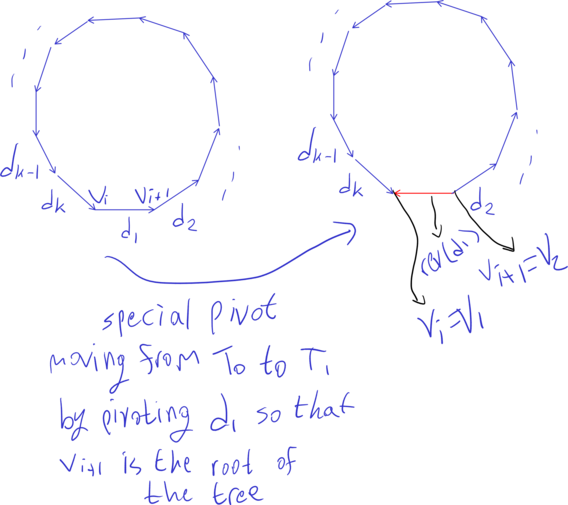 d_{k-1}
d_k
V_i
V_{i+1}
d_1
d_2
d_{k-1}
d_k
d_2
rev(d_1)
V_{i+1}=V_2
V_i=V_1
special pivot
moving from T_0 to T_1
by pivoting d_1 so that
V_{i+1} is the root of
the tree